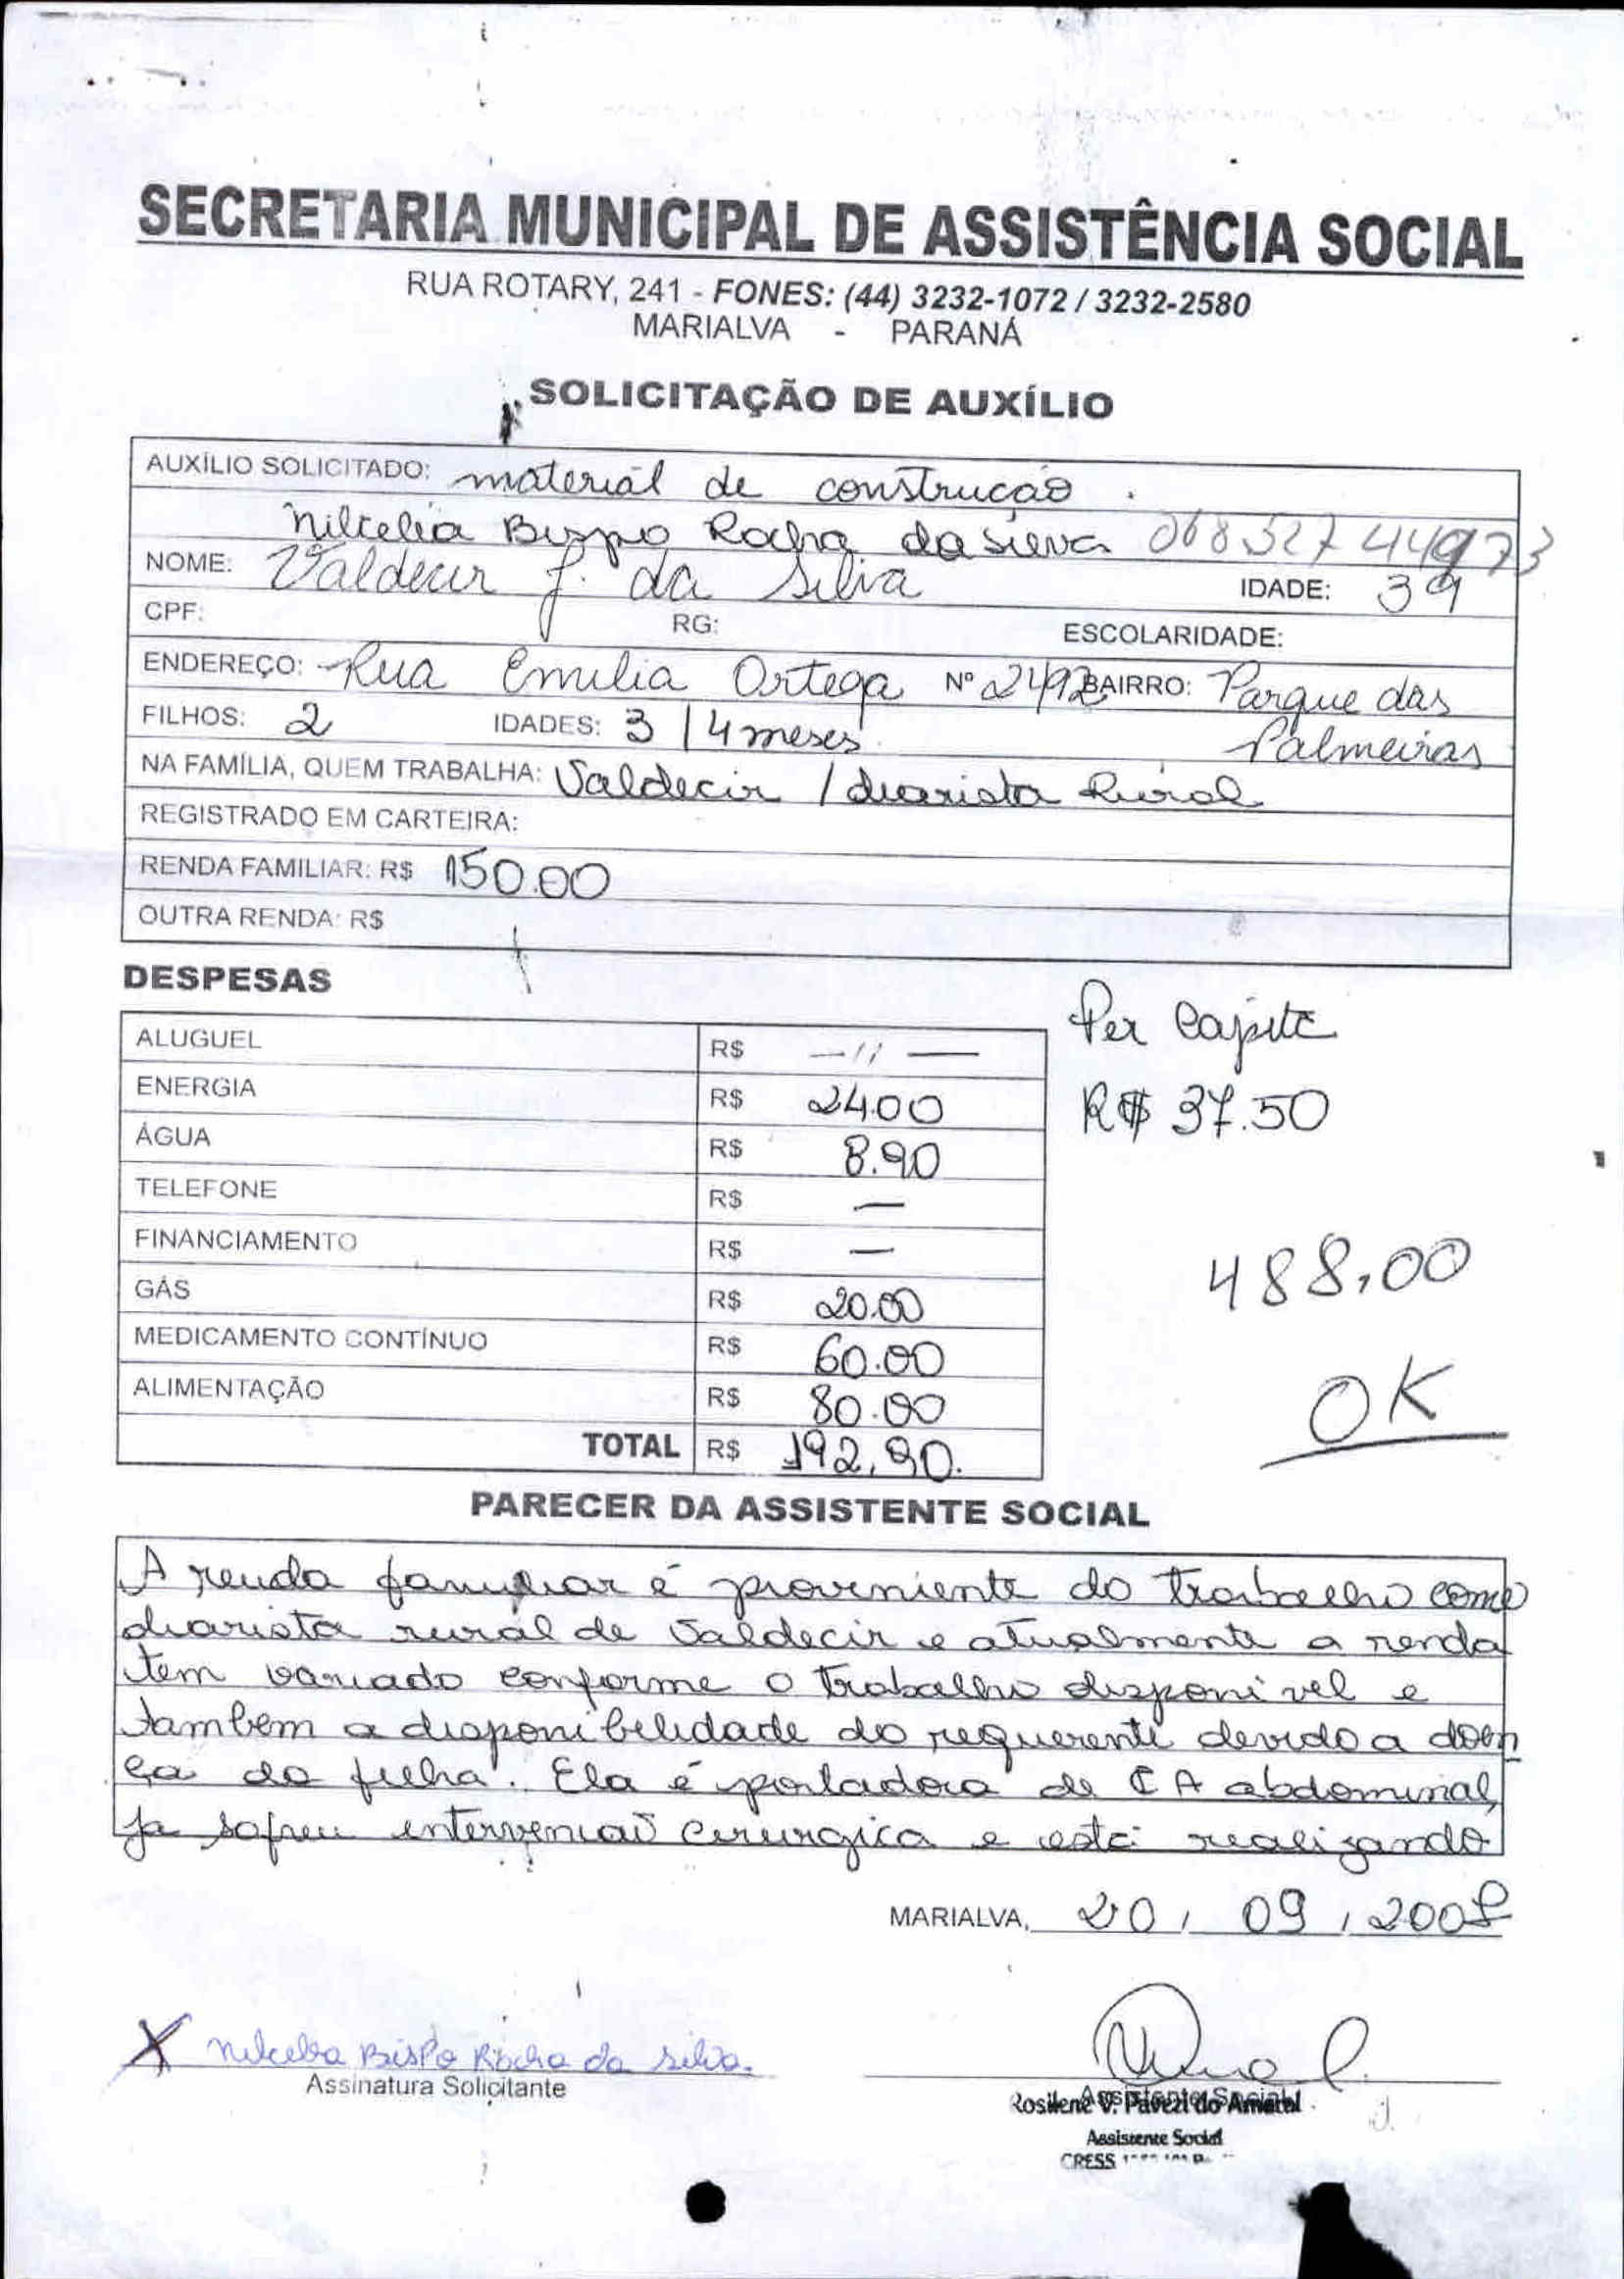 SECRETARIA MUNICIPAL DE ASSISTÊNCIA SOCIAL
RUA ROTARY, 241 - FONES: (44) 3232-1072 / 3232-2580
MARIALVA - PARANÁ
SOLICITAÇÃO DE AUXÍLIO
AUXÍLIO SOLICITADO: material de construcao.
Nilcelia Bispo Rocha da Silva 06852744973
NOME: Valdecir J. da Silva IDADE: 39
CPF: RG: ESCOLARIDADE:
ENDEREÇO: Rua Emilia Ortega Nº 2492 BAIRRO: Parque das
Palmeiras
FILHOS: 2 IDADES: 3 / 4 meses
NA FAMÍLIA, QUEM TRABALHA: Valdecir / diarista Rural
REGISTRADO EM CARTEIRA:
RENDA FAMILIAR: R$ 150.00
OUTRA RENDA: R$
DESPESAS
Per Capita
R$ 37.50
ALUGUEL R$ — // —
ENERGIA R$ 24.00
ÁGUA R$ 8.90
TELEFONE R$ —
FINANCIAMENTO R$ —
GÁS R$ 20.00
MEDICAMENTO CONTÍNUO R$ 60.00
ALIMENTAÇÃO R$ 80.00
TOTAL R$ 192,90.
488,00
OK
PARECER DA ASSISTENTE SOCIAL
A renda familiar é proveniente do trabalho como
diarista rural de Valdecir e atualmente a renda
tem variado conforme o trabalho disponivel e
tambem a disponibilidade do requerente devido a doen
ça da filha. Ela é portadora de CA abdominal,
ja sofreu intervencao cirurgica e está realizando
MARIALVA, 20 / 09 / 2008
X Nilcelia Bispo Rocha da Silva.
Assinatura Solicitante
Assistente Social
Rosilene V. Pavezi do Amaral
Assistente Social
CRESS